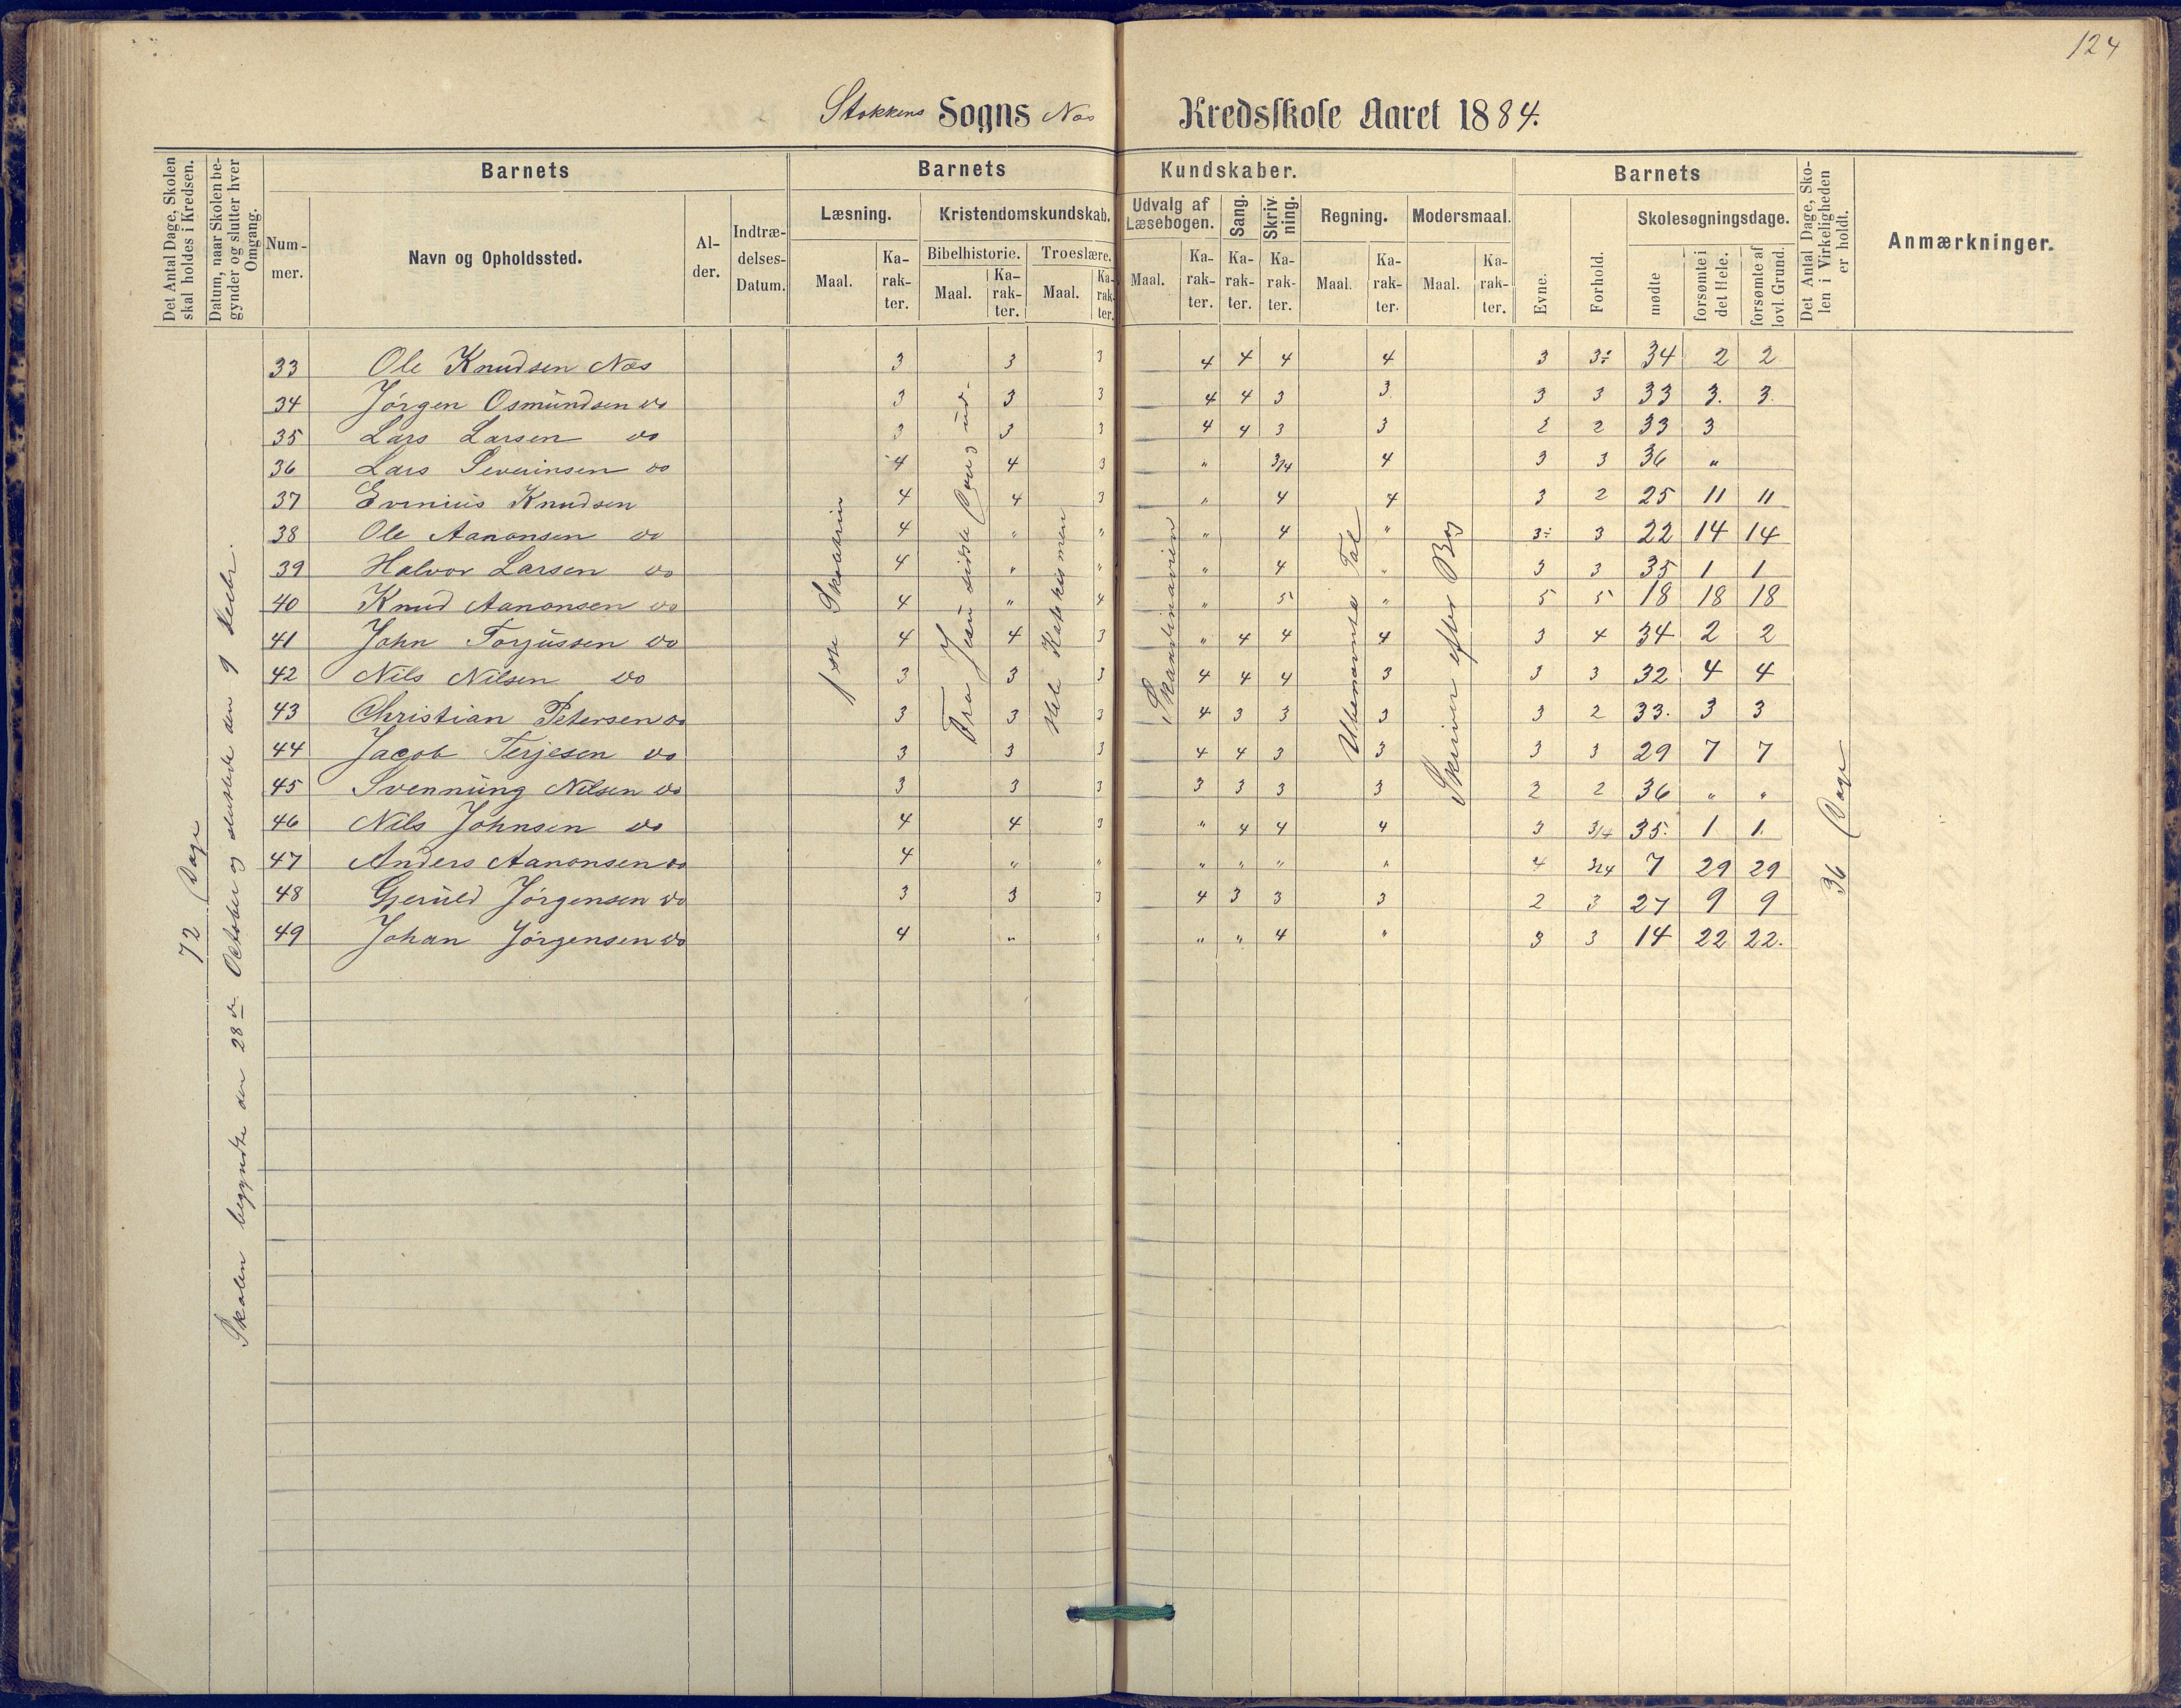 124
Stokkens Sogns Næs Kredsskole Aaret 1884.
Det Antal Dage, Skolen skal holdes i Kredsen.
Datum, naar Skolen begynder og slutter hver Omgang.
Barnets
Nummer.
Navn og Opholdssted.
Alder.
Indtrædelses-Datum.
Barnets Kundskaber.
Læsning.
Maal.
Karakter.
Kristendomskundskab.
Bibelhistorie.
Maal.
Karakter.
Troeslære.
Maal.
Karakter.
Udvalg af Læsebogen.
Maal.
Karakter.
Sang.
Karakter.
Skrivning.
Karakter.
Regning.
Maal.
Karakter.
Modersmaal.
Maal.
Karakter.
Barnets
Evne.
Forhold.
Skolesøgningsdage.
mødte
forsømte i det Hele.
forsømte af lovl. Grund.
Det Antal Dage, Skolen i Virkeligheden er holdt.
Anmærkninger.
72 Dage
Skolen begyndte den 28de October og sluttede den 9 Decbr.
1ste Skoletrin
Fra Jesu sidste Dag ud.
Hele Katekismen
Ubenævnte Tal
Skriver efter Bog
36 Dage
33 Ole Knudsen Næs 3 3 3 4 4 4 4 3 3÷ 34 2 2
34 Jörgen Osmundsen do 3 3 3 4 4 3 3. 3 3 33 3. 3.
35 Lars Larsen do 3 3 3 4 4 3 3 2 2 33 3
36 Lars Severinsen do 4 4 3 " 3/4 4 3 3 36 "
37 Evenius Knudsen 4 4 3 " 4 4 3 2 25 11 11
38 Ole Aanonsen do 4 " " " 4 " 3÷ 3 22 14 14
39 Halvor Larsen do 4 " " " 4 " 3 3 35 1 1
40 Knud Aanonsen do 4 " 4 " 5 " 5 5 18 18 18
41 John Torjussen do 4 4 3 " 4 4 4 3 4 34 2 2
42 Nils Nilsen do 3 3 3 4 4 4 3 3 3 32 4 4
43 Christian Petersen do 3 3 3 4 3 3 3 3 2 33. 3 3
44 Jacob Terjesen do 3 3 3 4 4 3 3 3 3 29 7 7
45 Svennung Nilsen do 3 3 3 3 3 3 3 2 2 36 " "
46 Nils Johnsen do 4 4 3 " 4 4 4 3 3/4 35. 1 1.
47 Anders Aanonsen do 4 " " " " " " 4 3/4 7 29 29
48 Gjeruld Jörgensen do 3 3 3 4 3 3 3 2 3 27 9 9
49 Johan Jörgensen do 4 " " " " 4 " 3 3 14 22 22.